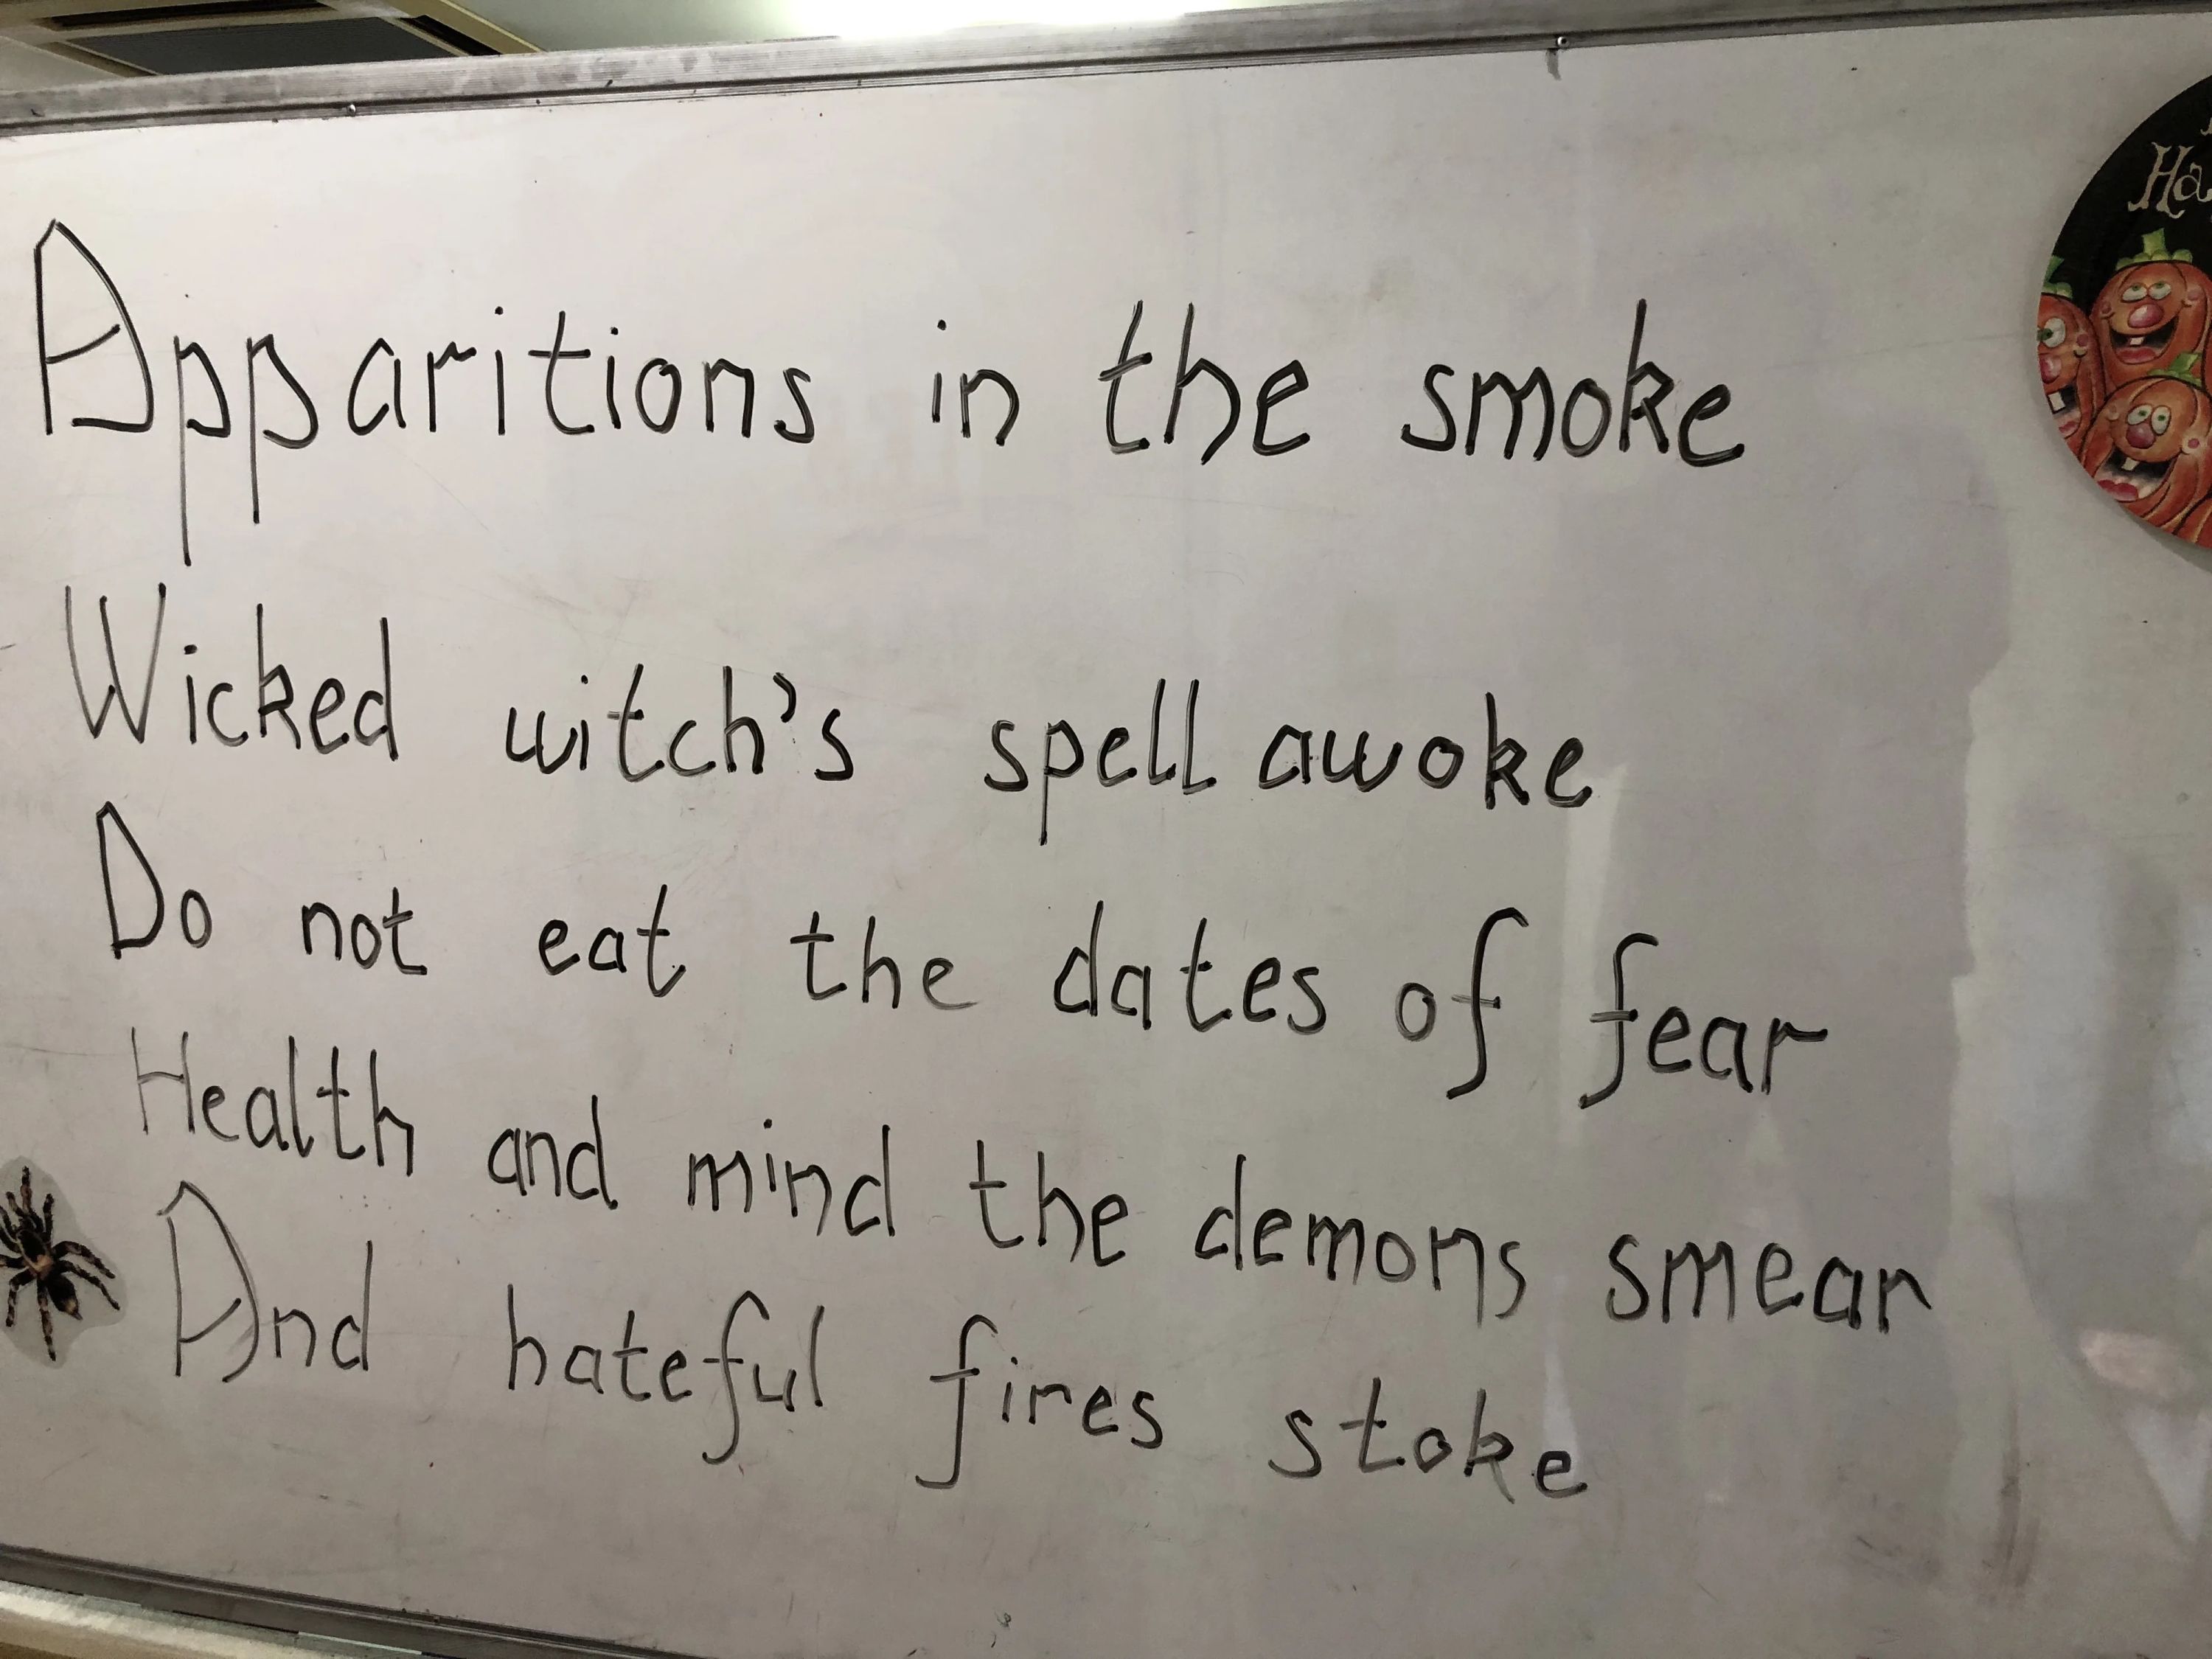 Apparitions in the smoke
Wicked witch's spell awoke
Do not eat the dates of fear
Health and mind the demons smear
And hateful fires stoke